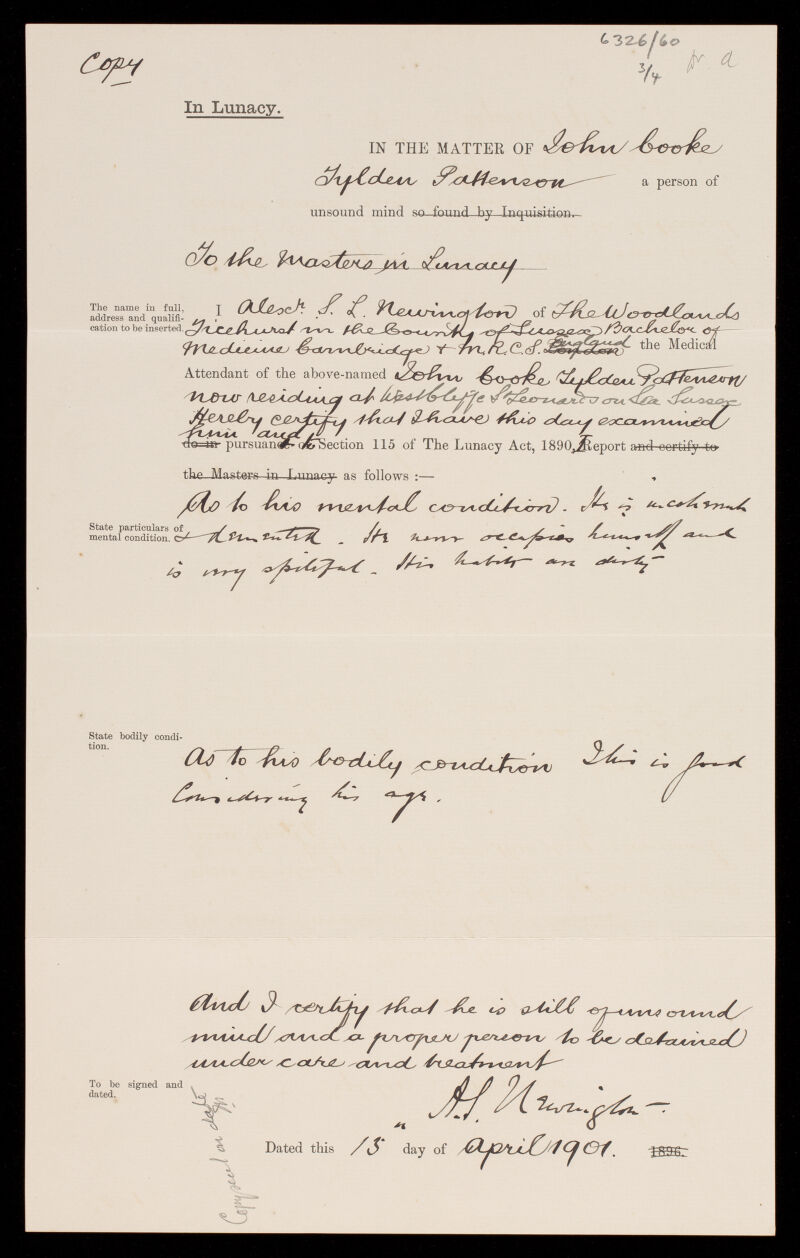 6326/60
3/4
Copy
In Lunacy.
IN THE MATTER OF John Cooke
Tylden Pattenson a person of
unsound mind so found by Inquisition.
To the Masters in Lunacy
The name in full, address and qualification to be inserted.
I Alexr. S. L. Newington of The Woodlands
Ticehurst in the County of Sussex Bachelor of
Medicine Cambridge + M.R.C.S. London England the Medical
Attendant of the above-named John Cooke Tylden Pattenson
now residing at Westcliffe St Leonards on Sea Sussex
Hereby certify that I have this day examined
him and
do in pursuant to Section 115 of The Lunacy Act, 1890, I Report and certify to
the Masters in Lunacy as follows :—
State particulars of mental condition.
As to his mental condition. He is incoherent
& demented. He never occupies himself and
is very spiteful. His habits are dirty
State bodily condition.
As to his bodily condition This is good
Considering his age.
And I certify that he is still of unsound
mind and a proper person to be detained
under care and treatment
To be signed and dated.
A.S. Newington.
Dated this 15 day of April 1901. 1896.
Copy sent on date